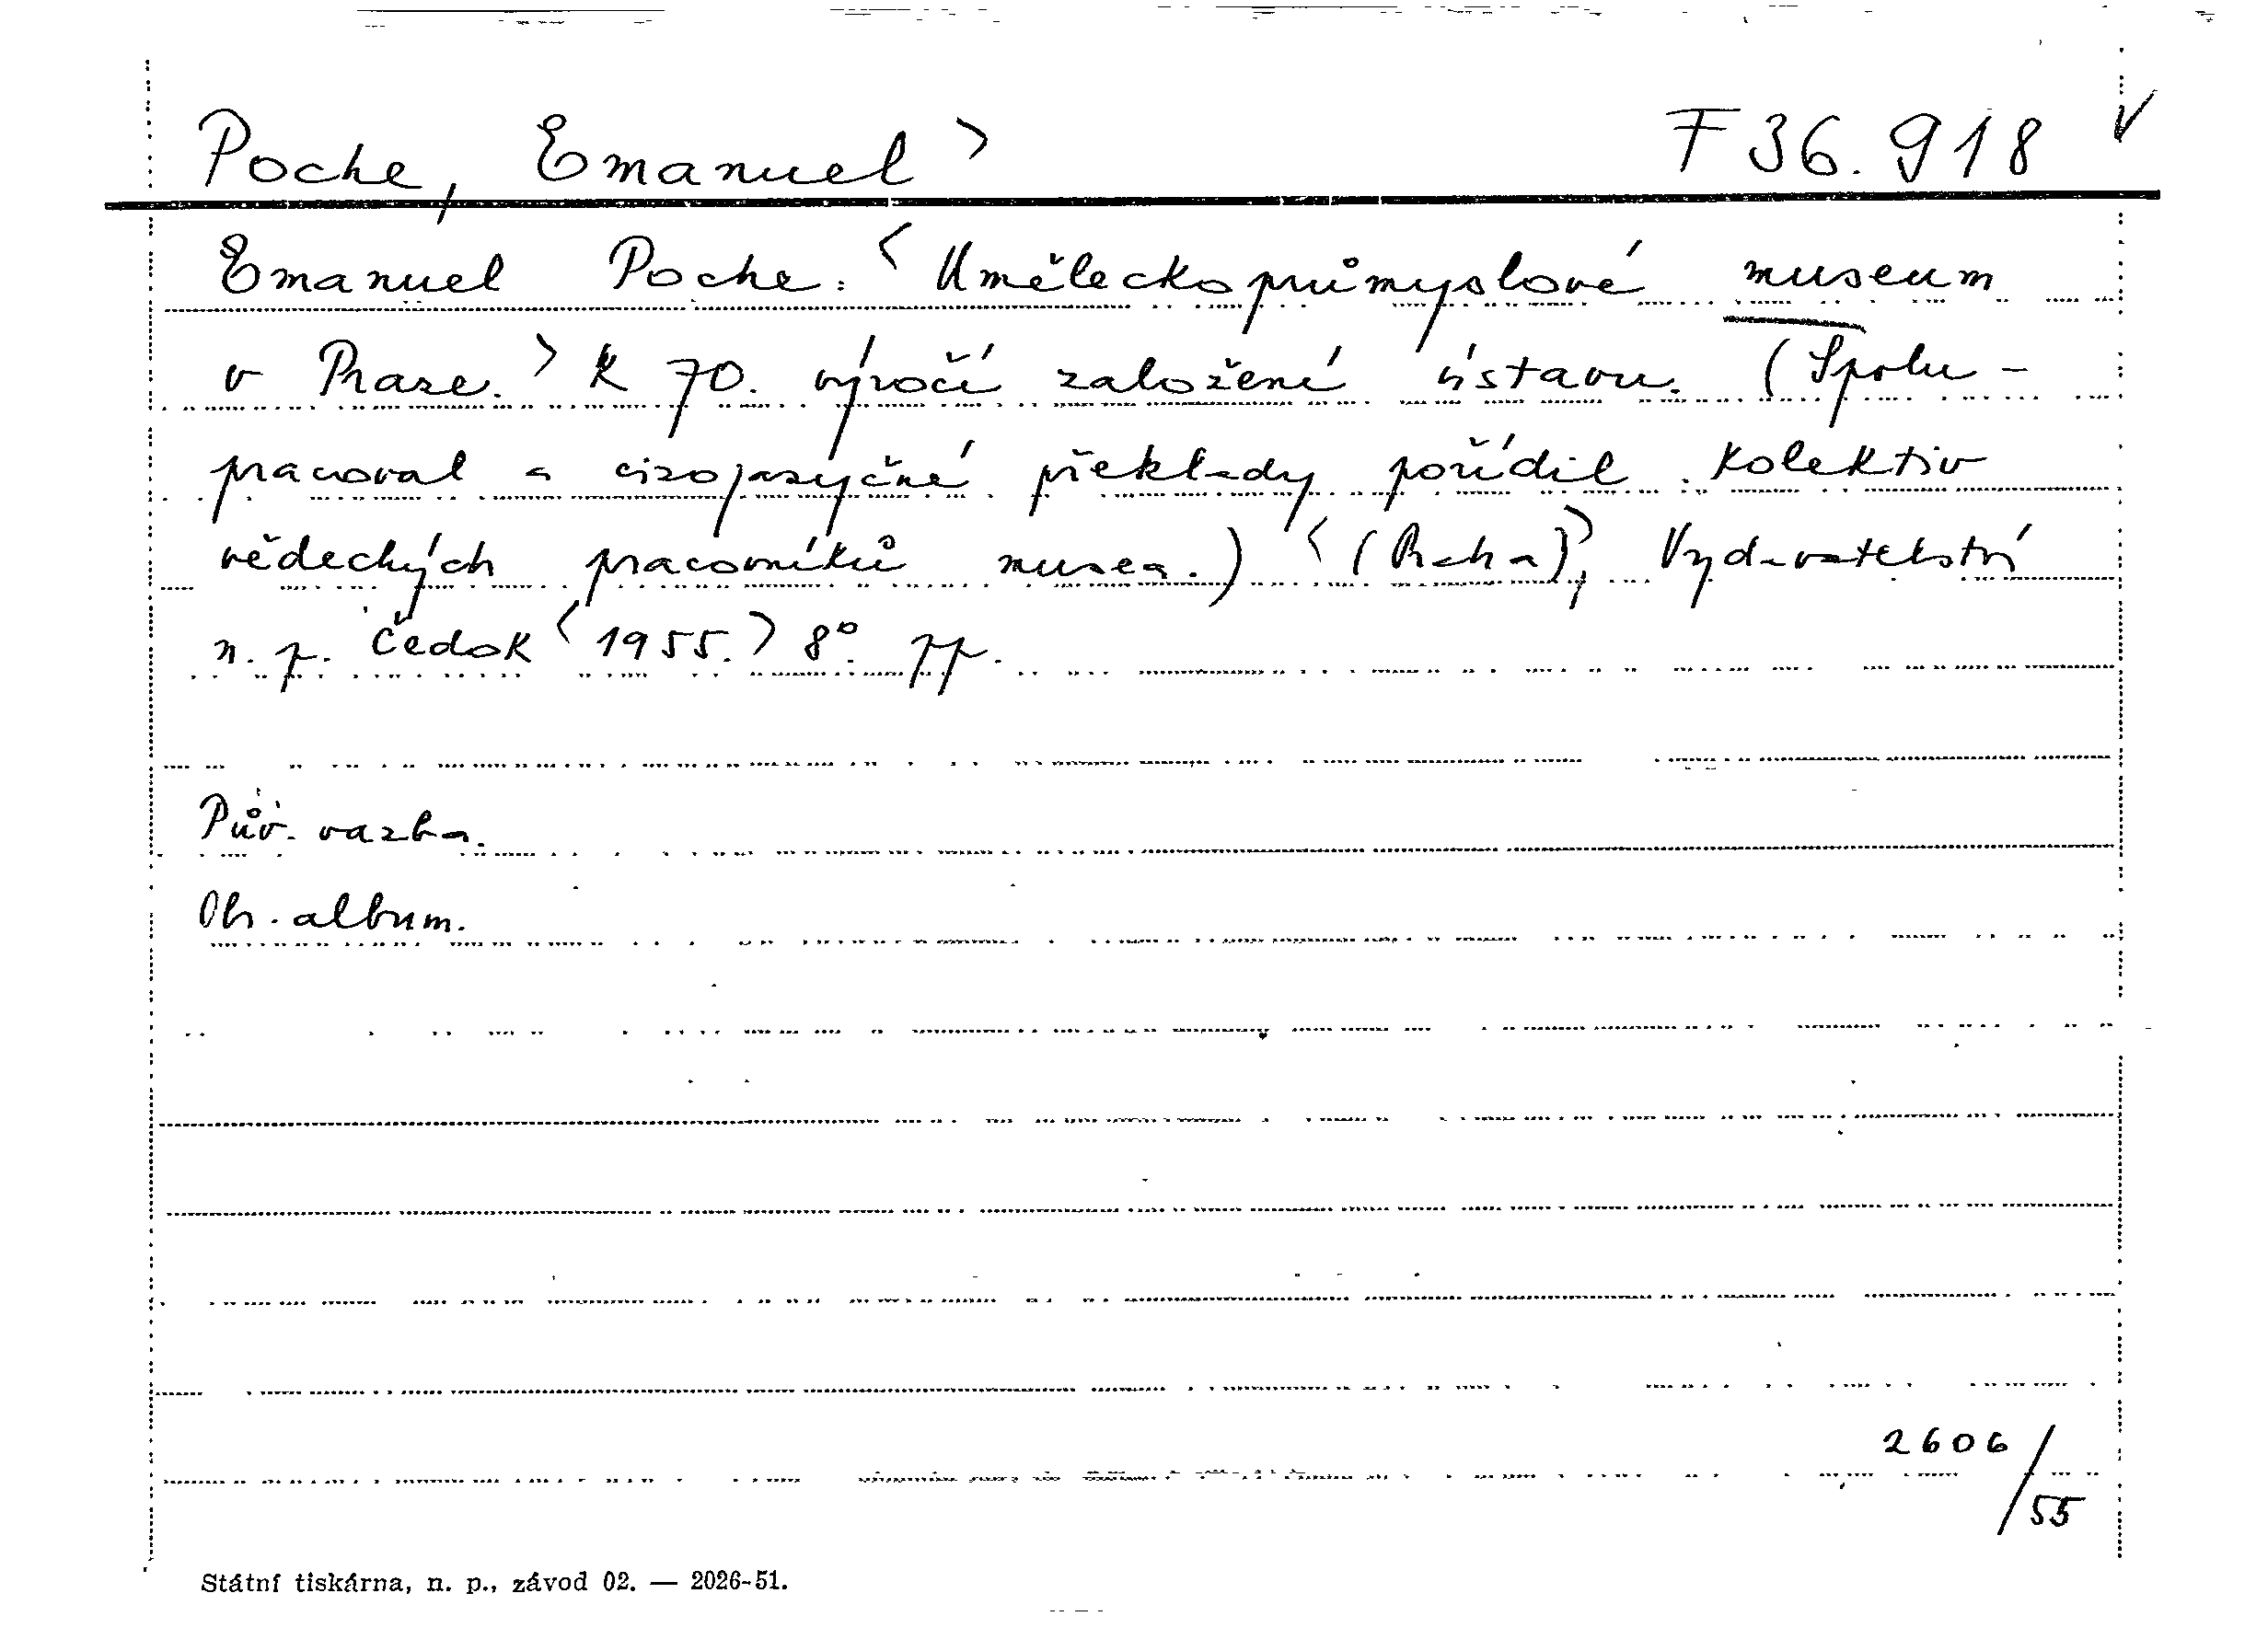 Poche, Emanuel > F 36.918 √
Emanuel Poche: < Uměleckoprůmyslové museum
v Praze. > K 70. výročí založení ústavu. (Spolu-
pracoval a cizojazyčné překlady pořídil kolektiv
vědeckých pracovníků musea.) < (Praha), > Vydavatelství
n. p. Čedok < 1955. > 8°. pp.
Pův. vazba.
Obr. album.
2606/55
Státní tiskárna, n. p., závod 02. — 2026-51.